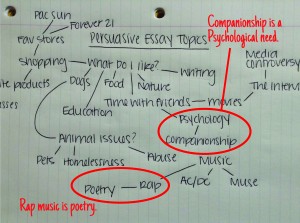 Pac sun
Forever 21
Fav stores
Persuasive Essay Topics
Companionship is a
Psychological need.
Shopping
What Do I like?
Writing
Media
controversy
products
Dogs
Food
Nature
The Interv
Education
Time with friends
movies
Psychology
companionship
Animal issues?
Pets
Homelessness
Abuse
Music
Poetry
Rap
AC/DC
Muse
Rap music is poetry.